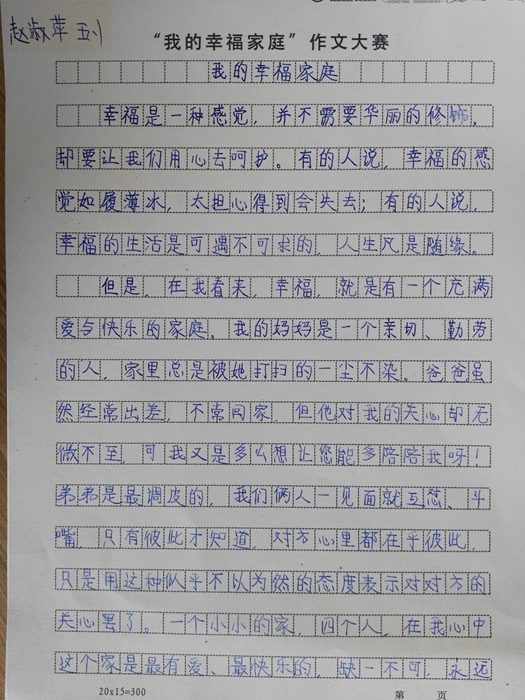 赵淑苹 五1
“我的幸福家庭”作文大赛
我的幸福家庭
幸福是一种感觉，并不需要华丽的修饰，
却要让我们用心去呵护。有的人说，幸福的感
觉如履薄冰，太担心得到会失去；有的人说，
幸福的生活是可遇不可求的，人生凡是随缘。
但是，在我看来，幸福，就是有一个充满
爱与快乐的家庭。我的妈妈是一个亲切、勤劳
的人，家里总是被她打扫的一尘不染。爸爸虽
然经常出差，不常回家，但他对我的关心却无
微不至，可我又是多么想让您能多陪陪我呀！
弟弟是最凋皮的，我们俩人一见面就互怼、斗
嘴，只有彼此才知道，对方心里都在乎彼此，
只是用这种似乎不以为然的态度表示对对方的
关心罢了。一个小小的家，四个人，在我心中
这个家是最有爱、最快乐的，缺一不可，永远
20x15=300
第 页